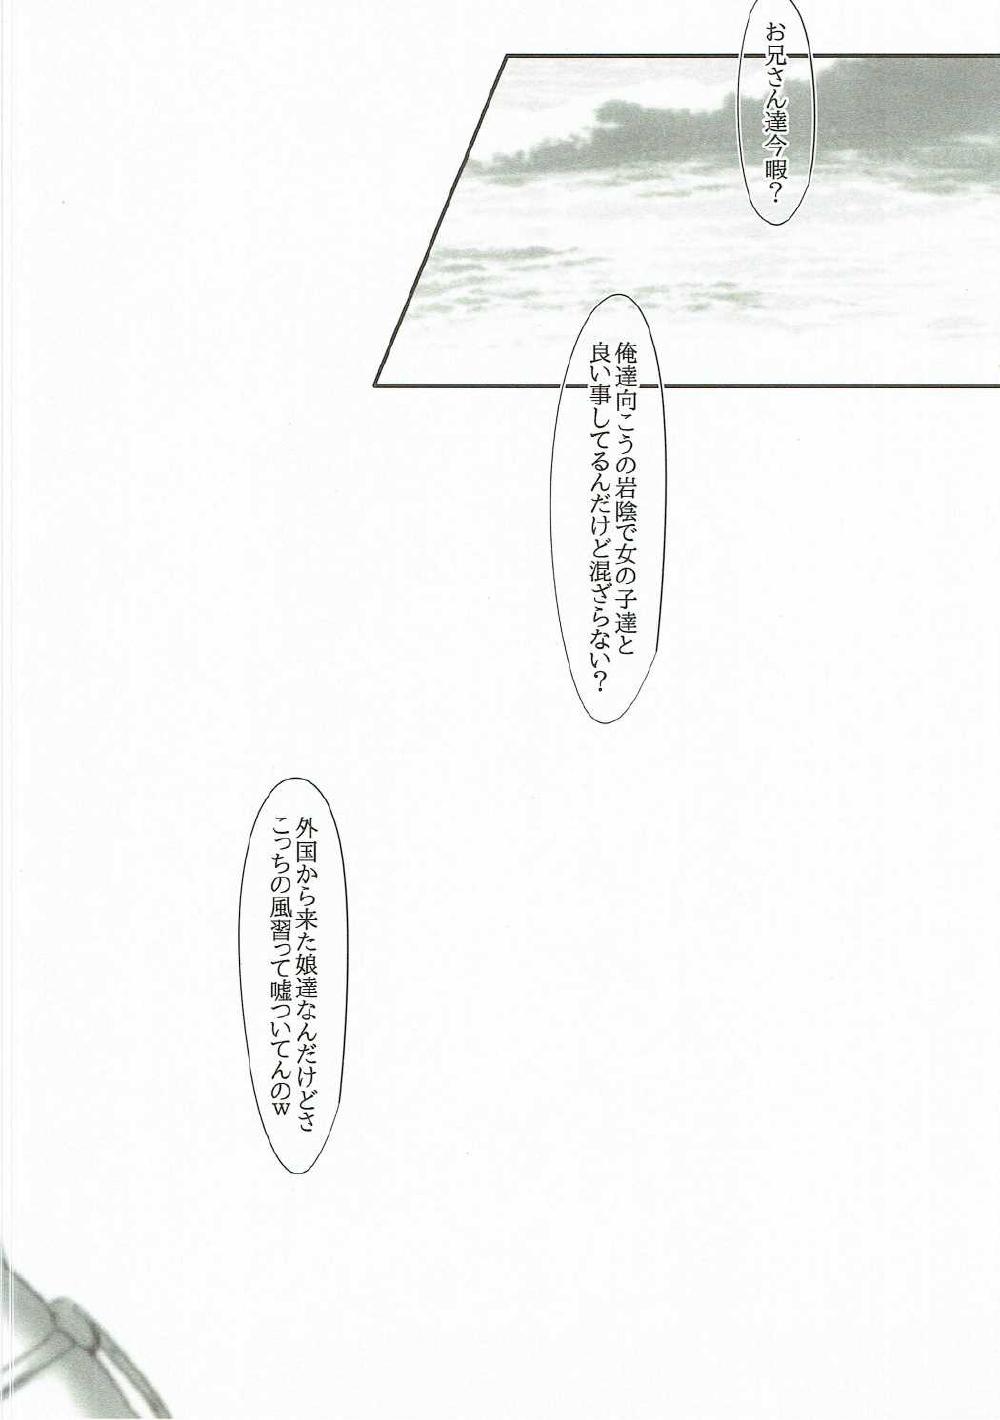 お兄さん達今暇？
俺達向こうの岩陰で女の子達と
良い事してるんだけど混ざらない？
外国から来た娘達なんだけどさ
こっちの風習って嘘ついてんのｗ